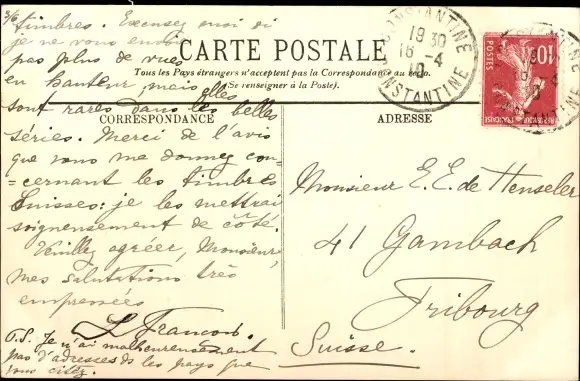 timbres. Excusez moi si
je ne vous envoie
pas plus de vues
en hauteur, mais elles
sont rares dans les belles
séries. Merci de l'avis
que vous me donnez con-
=cernant les timbres
Suisses: je les mettrai
soigneusement de côté.
Veuillez agréer, Monsieur,
mes salutations très
empressées
L. François.
P.S. Je n'ai malheureusement
pas d'adresses ds les pays que
vous citez.
CARTE POSTALE
Tous les Pays étrangers n'acceptent pas la Correspondance au recto.
(Se renseigner à la Poste).
CORRESPONDANCE
ADRESSE
Monsieur E. E. de Henseler
41 Gambach
Fribourg
Suisse.
CONSTANTINE
19 30
16 - 4
10
CONSTANTINE
POSTES
10c
REPUBLIQUE FRANÇAISE